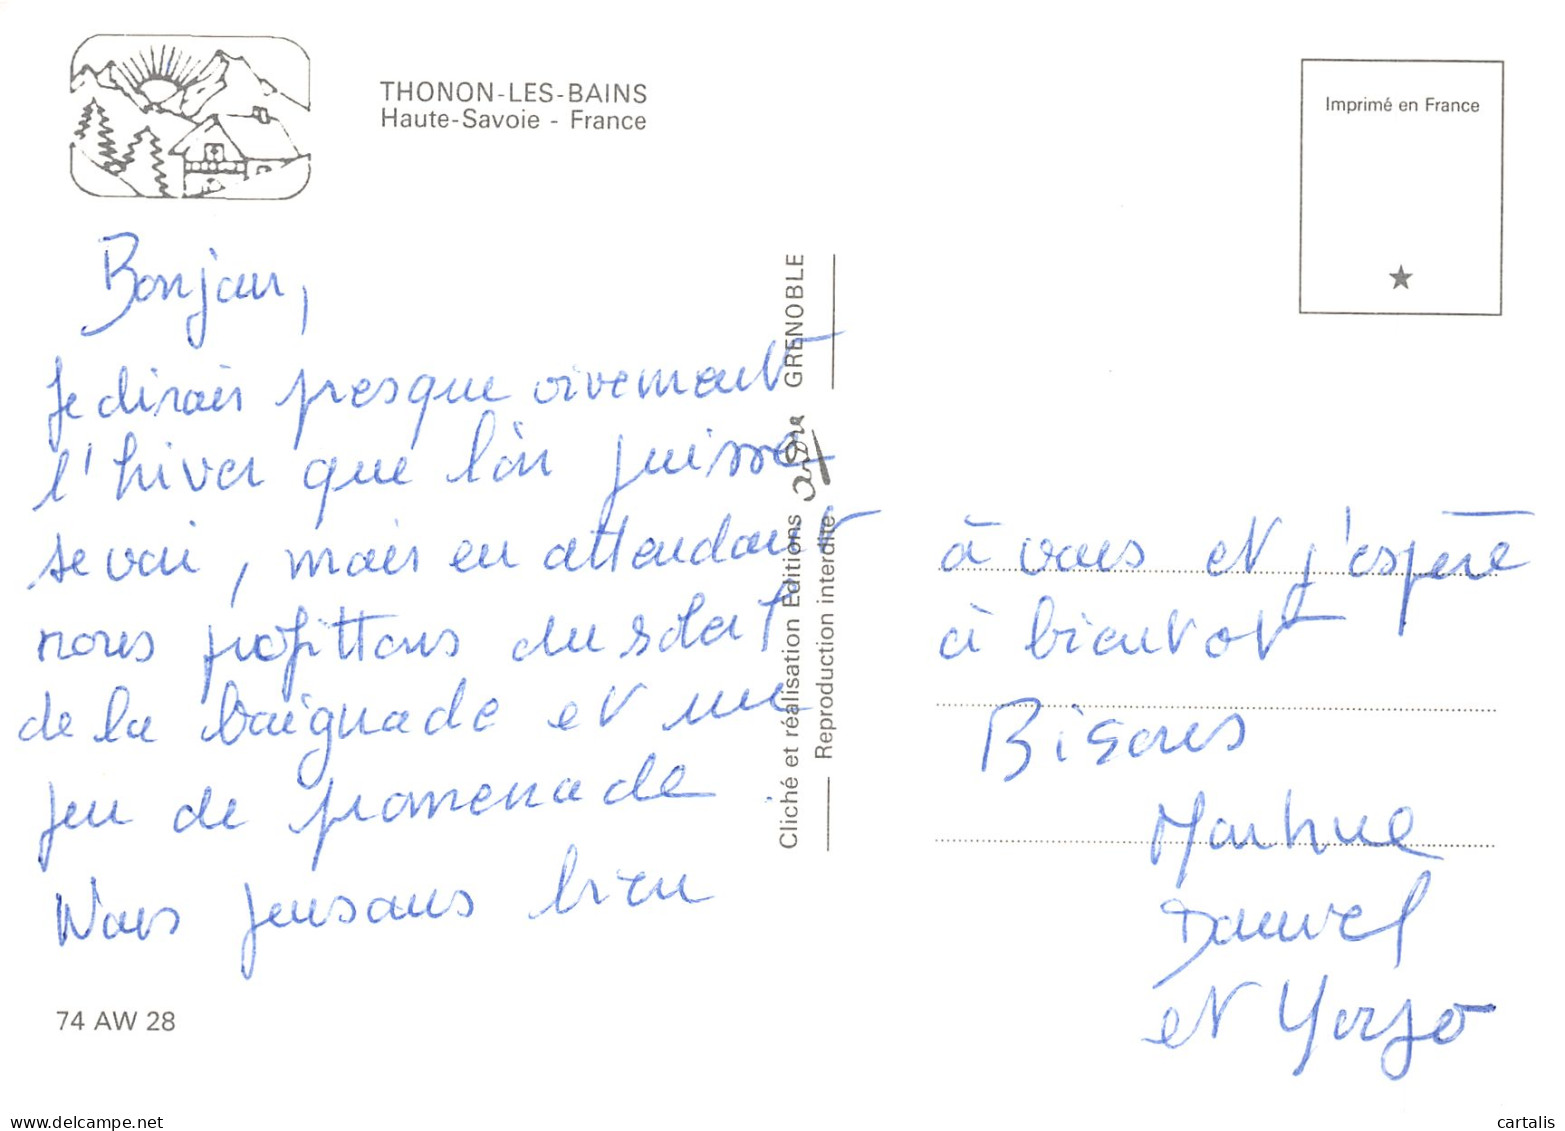 THONON-LES-BAINS
Haute-Savoie - France
Imprimé en France
Bonjour,
Je dirais presque vivement
l'hiver que l'on puisse
se voir, mais en attendant
nous profittons du soleil
de la baignade et un
peu de promenade
Nous pensons bien
74 AW 28
Cliché et réalisation Editions GRENOBLE
Reproduction interdite
à vous et j'espère
à bientot
Bisous
et
cartalis
delcampe.net